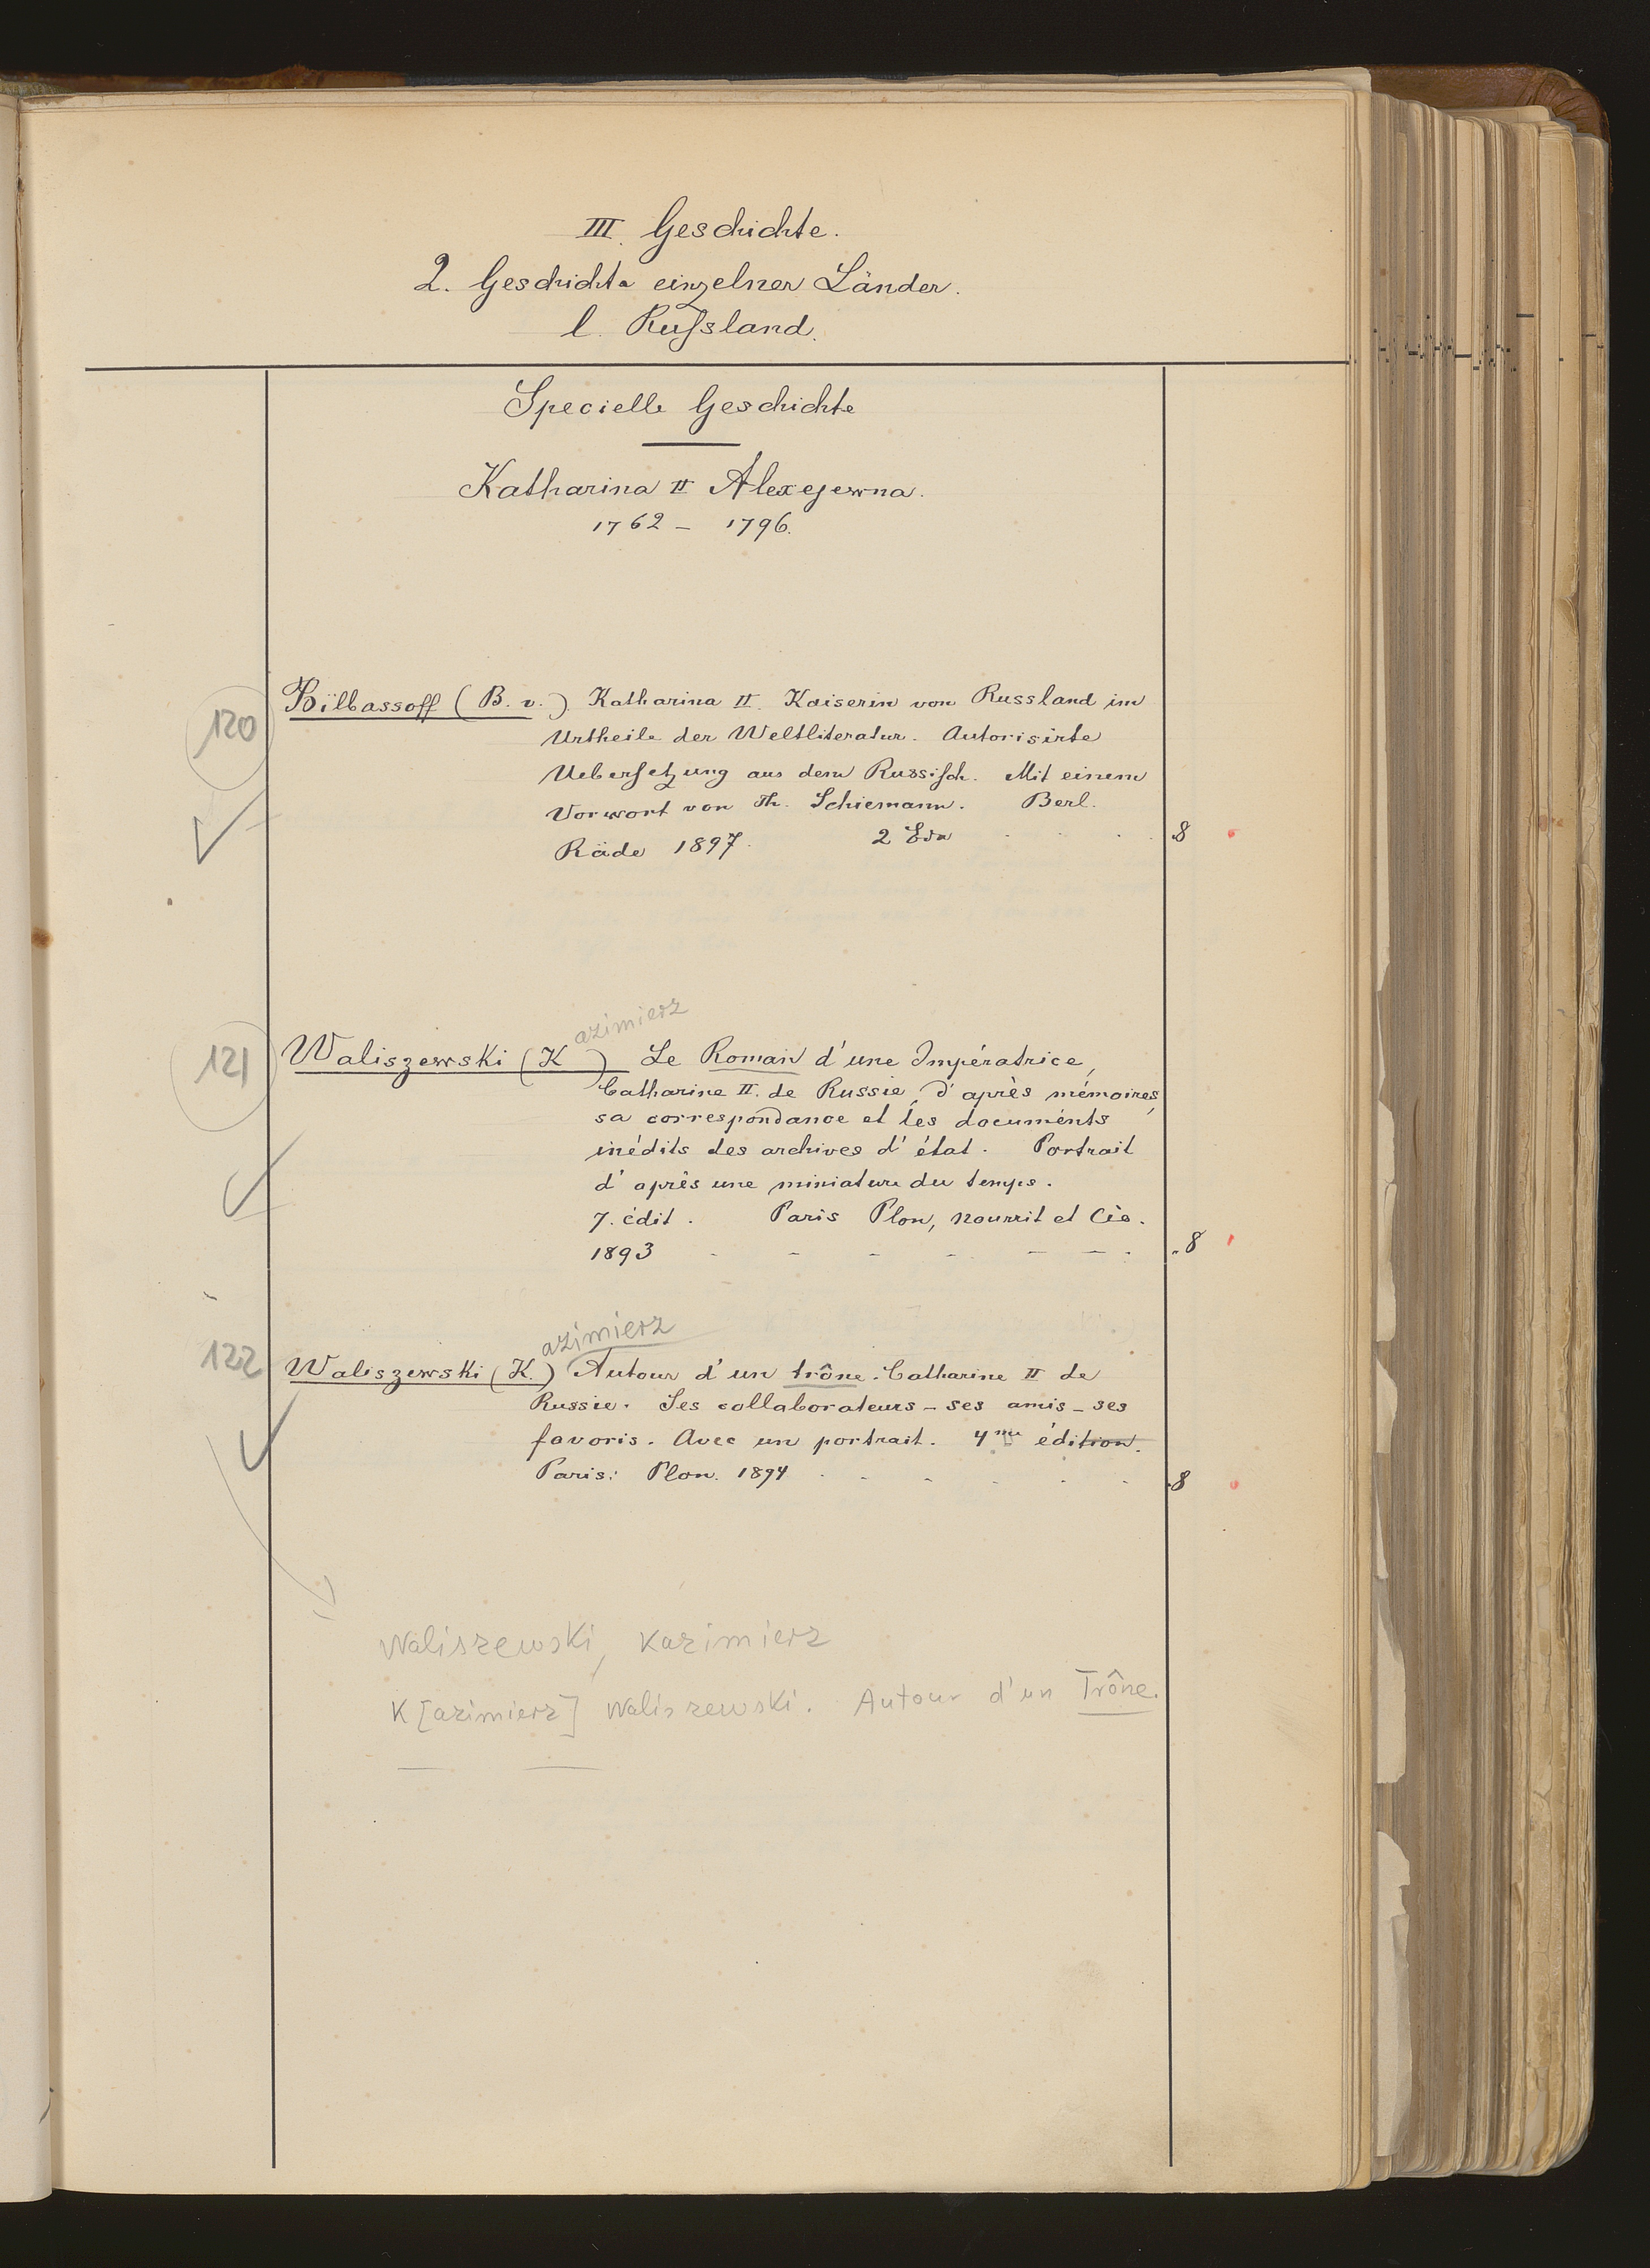 III. Geschichte.
2. Geschichte einzelner Länder.
l. Russland.
Specielle Geschichte
Katharina II Alexejewna.
1762 – 1796.
120
Bilbassoff (B. v.) Katharina II. Kaiserin von Russland im
Urtheile der Weltliteratur. Autorisirte
Uebersetzung aus dem Russisch. Mit einem
Vorwort von Th. Schiemann. Berl.
Räde 1897. 2 Bde 8
azimierz
121
Waliszewski (K ) Le Roman d'une Impératrice,
Catharine II. de Russie, d'après mémoires,
sa correspondance et les documents
inédits des archives d'état. Portrait
d'après une miniature du temps.
7. édit. Paris Plon, Nourrit et Cie.
1893 - - - - - - . 8
azimierz
122
Waliszewski (K.) Autour d'un trône. Catharine II de
Russie. Ses collaborateurs – ses amis – ses
favoris. Avec un portrait. 4me édition.
Paris: Plon. 1894 . - - - . . 8
Waliszewski, Kazimierz
K[azimierz] Waliszewski. Autour d'un Trône.